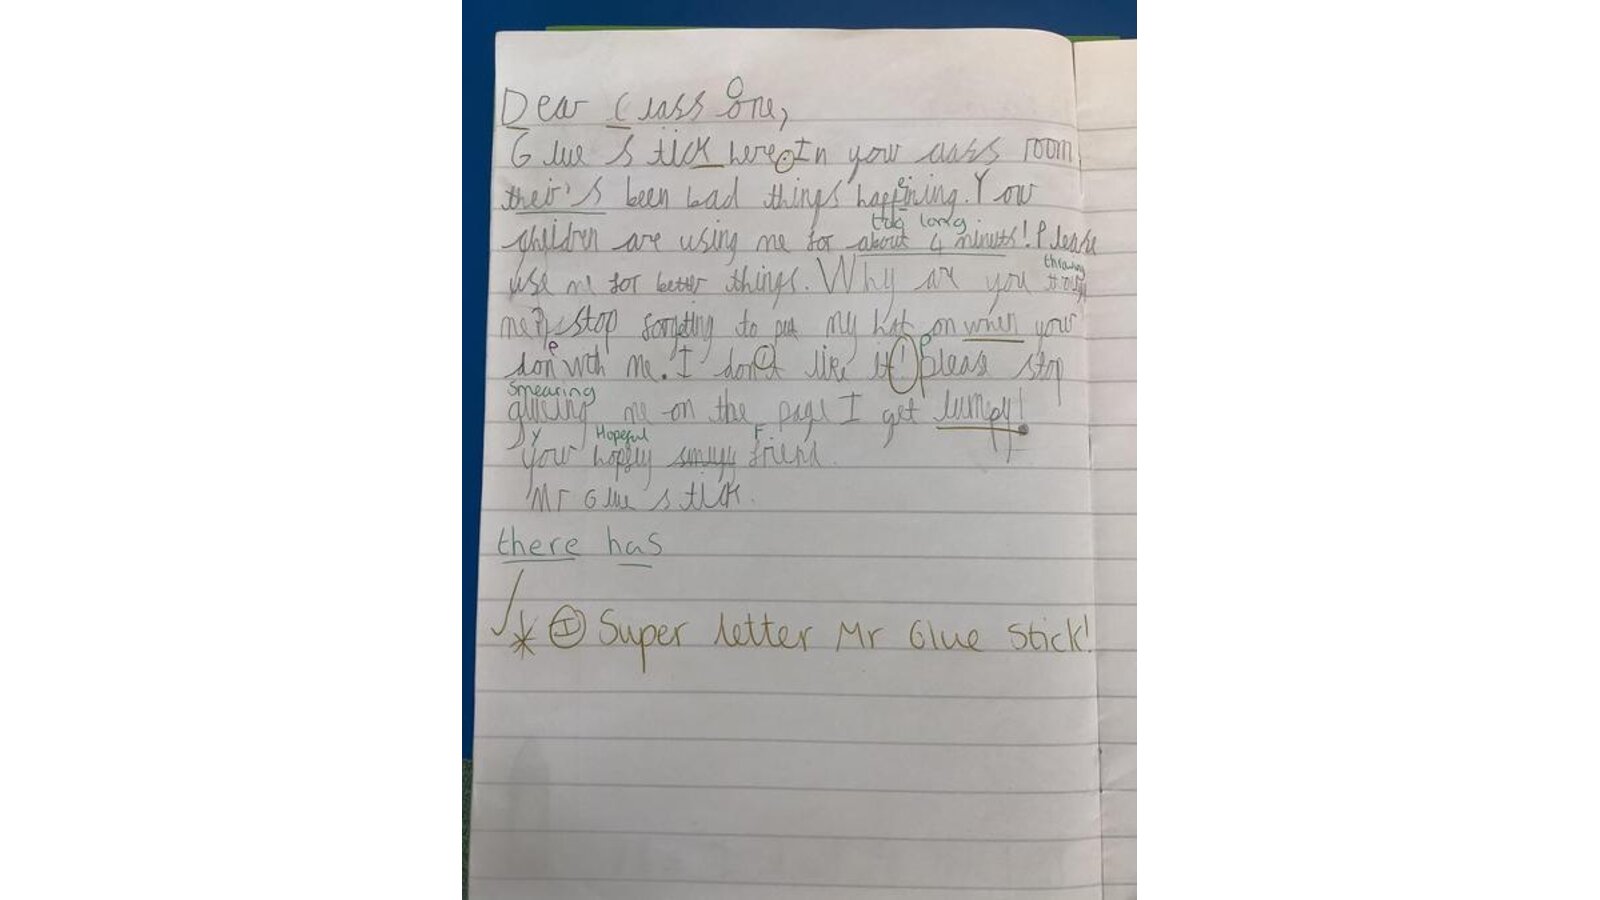 O
Dear Class one,
Glue Stick here. In your class room
their's been bad things happining. Your
e
too long
children are using me for about 4 minuts! Please
use me for better things. Why are you
throwing
me? stop forgeting to put my hat on when your
e
don with me. I don't like it! please stop
P
Smearing
me on the page I get lumpy!
Y Hopeful F
your hopfly friend.
Mr Glue stick.
there has
I Super letter Mr Glue Stick!